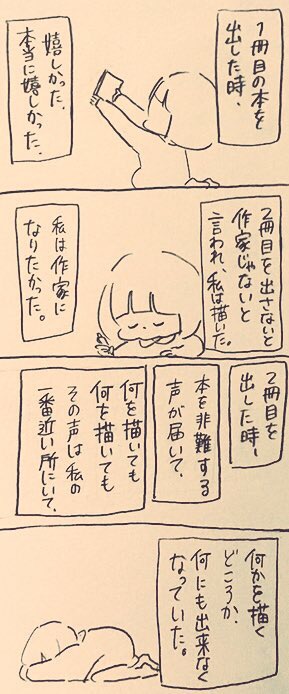 1冊目の本を
出した時、
嬉しかった、
本当に嬉しかった、
2冊目を出さないと
作家じゃないと
言われ、私は描いた。
私は作家に
なりたかった。
2冊目を
出した時、
本を非難する
声が届いて、
何を描いても
何を描いても
その声は私の
一番近い所にいて、
何かを描く
どころか、
何にも出来なく
なっていた。